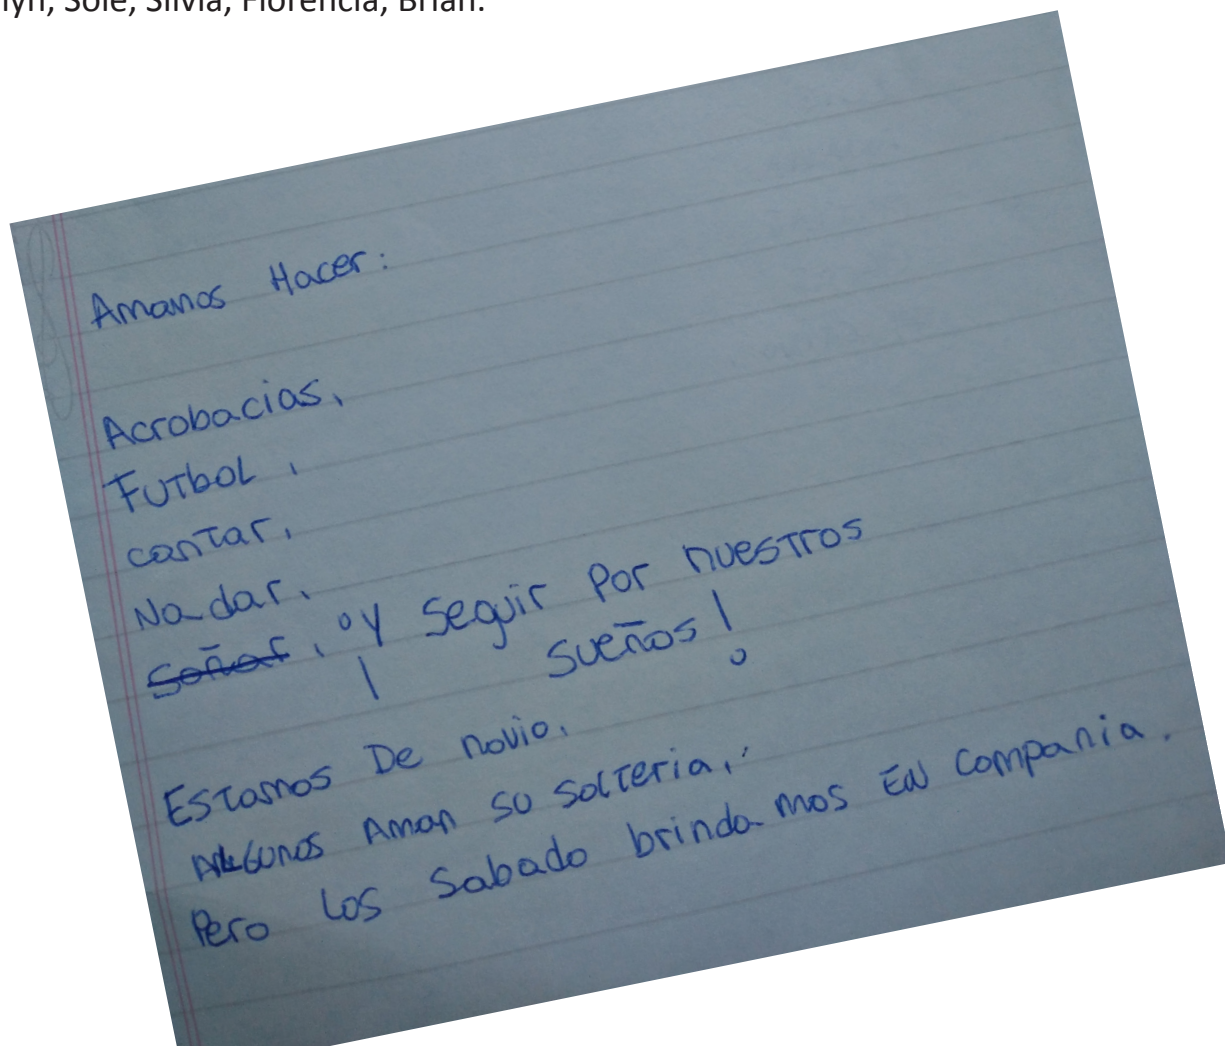 Sole, Silvia, Florencia, Brian.
Amamos Hacer:
Acrobacias,
Futbol,
cantar,
Nadar,
Soñar, ¡Y seguir Por nuestros
sueños!
Estamos De novio.
Algunos Aman su solteria,
Pero Los Sabado brindamos EN compania.